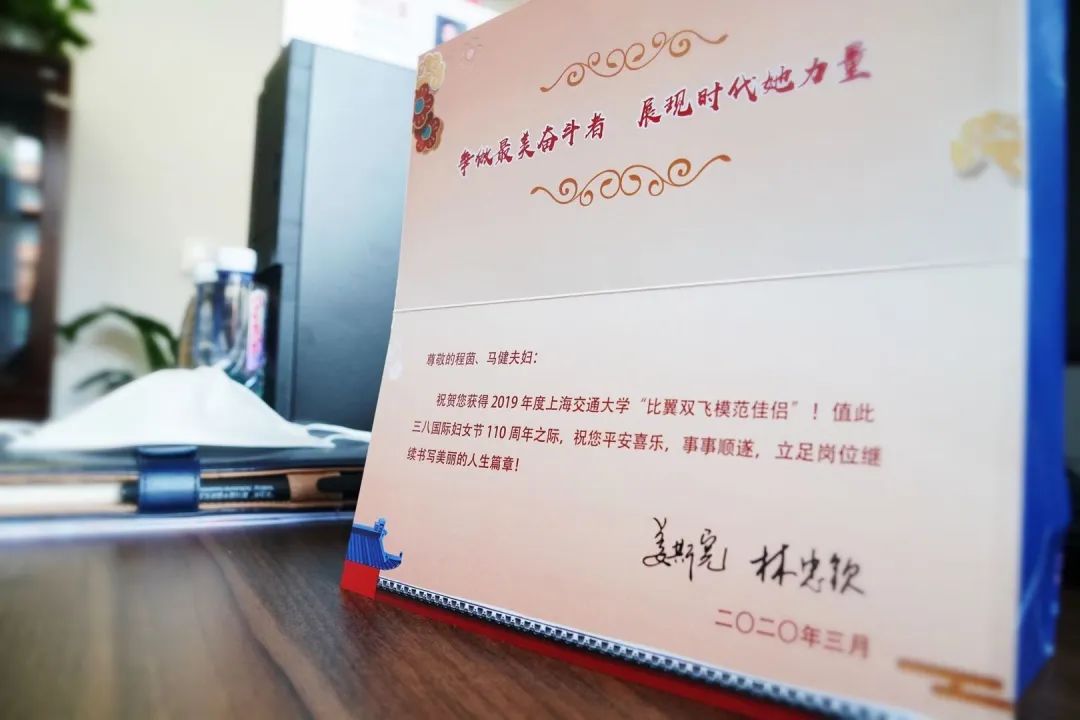 争做最美奋斗者 展现时代她力量
尊敬的程茵、马健夫妇：
祝贺您获得 2019 年度上海交通大学“比翼双飞模范佳侣”！值此
三八国际妇女节 110 周年之际，祝您平安喜乐，事事顺遂，立足岗位继
续书写美丽的人生篇章！
姜斯宪 林忠钦
二〇二〇年三月